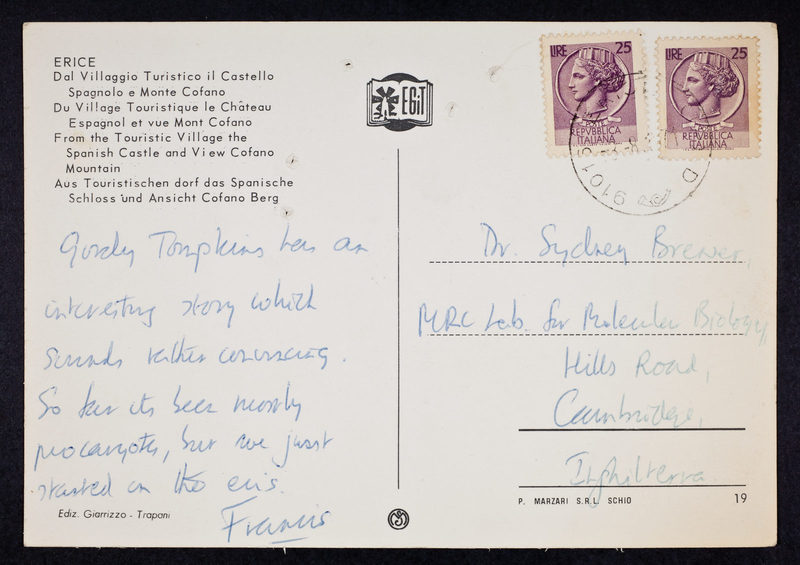 ERICE
Dal Villaggio Turistico il Castello
Spagnolo e Monte Cofano
Du Village Touristique le Château
Espagnol et vue Mont Cofano
From the Touristic Village the
Spanish Castle and View Cofano
Mountain
Aus Touristischen dorf das Spanische
Schloss und Ansicht Cofano Berg
EGIT
LIRE 25
POSTE
REPVBBLICA
ITALIANA
LIRE 25
POSTE
REPVBBLICA
ITALIANA
9101
Gordy Tompkins has an
interesting story which
sounds rather convincing.
So far its been mostly
procaryotes, but we just
started on the eus.
Francis
Dr. Sydney Brenner,
MRC Lab. for Molecular Biology,
Hills Road,
Cambridge,
Inghilterra
Ediz. Giarrizzo - Trapani
P. MARZARI S.R.L. SCHIO
19